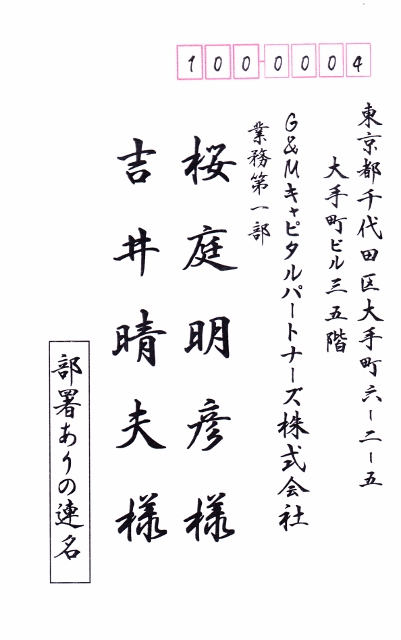 100-0004
東京都千代田区大手町六ー二ー五
大手町ビル三五階
G&Mキャピタルパートナーズ株式会社
業務第一部
桜庭明彦様
吉井晴夫様
部署ありの連名